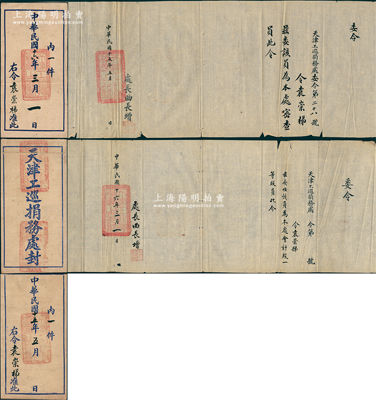 內一件
中華民國十六年三月一日
右令袁榮梯准此
委令
天津工巡捐務處委令第二十八號
令袁榮梯
茲委該員為本處審查員此令
處長曲長增
中華民國十五年五月 日
天津工巡捐務處封
委令
天津工巡捐務處 令第 號
令袁榮梯
茲委任該員為本處會計股一
等股員此令
處長曲長增
中華民國十六年三月一日
內一件
中華民國十五年五月 日
右令袁榮梯准此
上海陽明拍賣